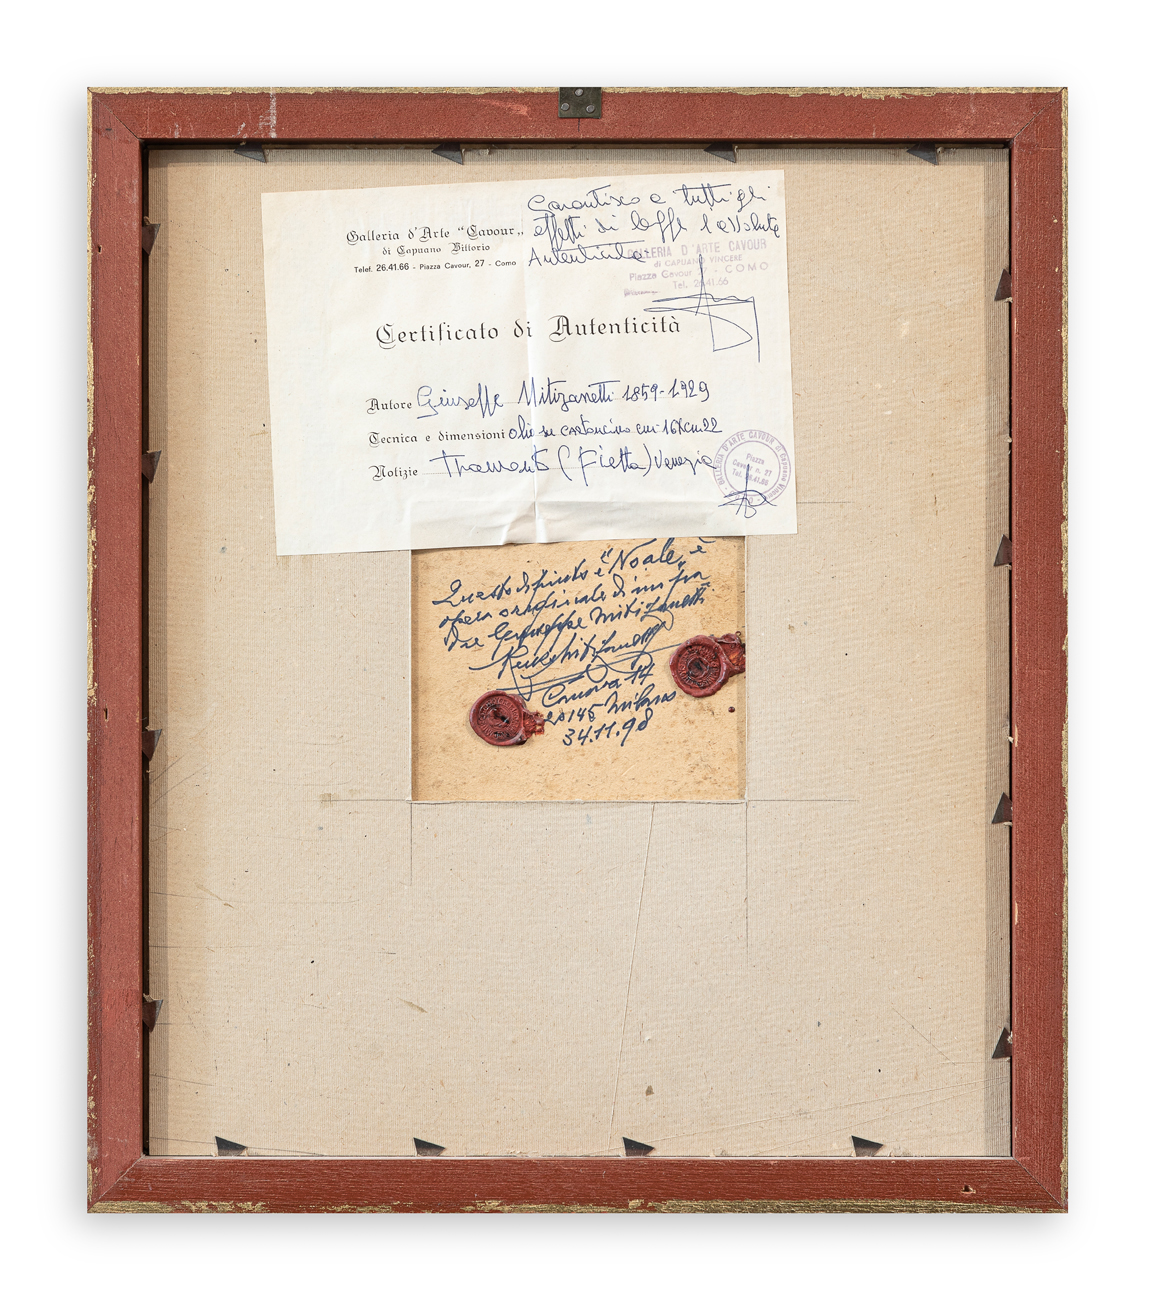 Galleria d'Arte "Cavour„
di Capuano Vittorio
Telef. 26.41.66 - Piazza Cavour, 27 - Como
Garantisco a tutti gli
effetti di legge l'assoluta
Autenticità
GALLERIA D'ARTE CAVOUR
di CAPUANO VINCERE
Piazza Cavour 27 - COMO
Tel. 26.41.66
Certificato di Autenticità
Autore Giuseppe Mitizanetti 1859-1929
Tecnica e dimensioni olio su cartoncino cm 16xcm22
Notizie Tramonto (Fietta) Venezia
GALLERIA D'ARTE CAVOUR di Capuano
Piazza
Cavour n. 27
Tel. 26.41.66
Questo dipinto è "Noale„ è
opera originale di mio
Giuseppe Miti Zanetti
Canova 14
20145 Milano
34.11.98